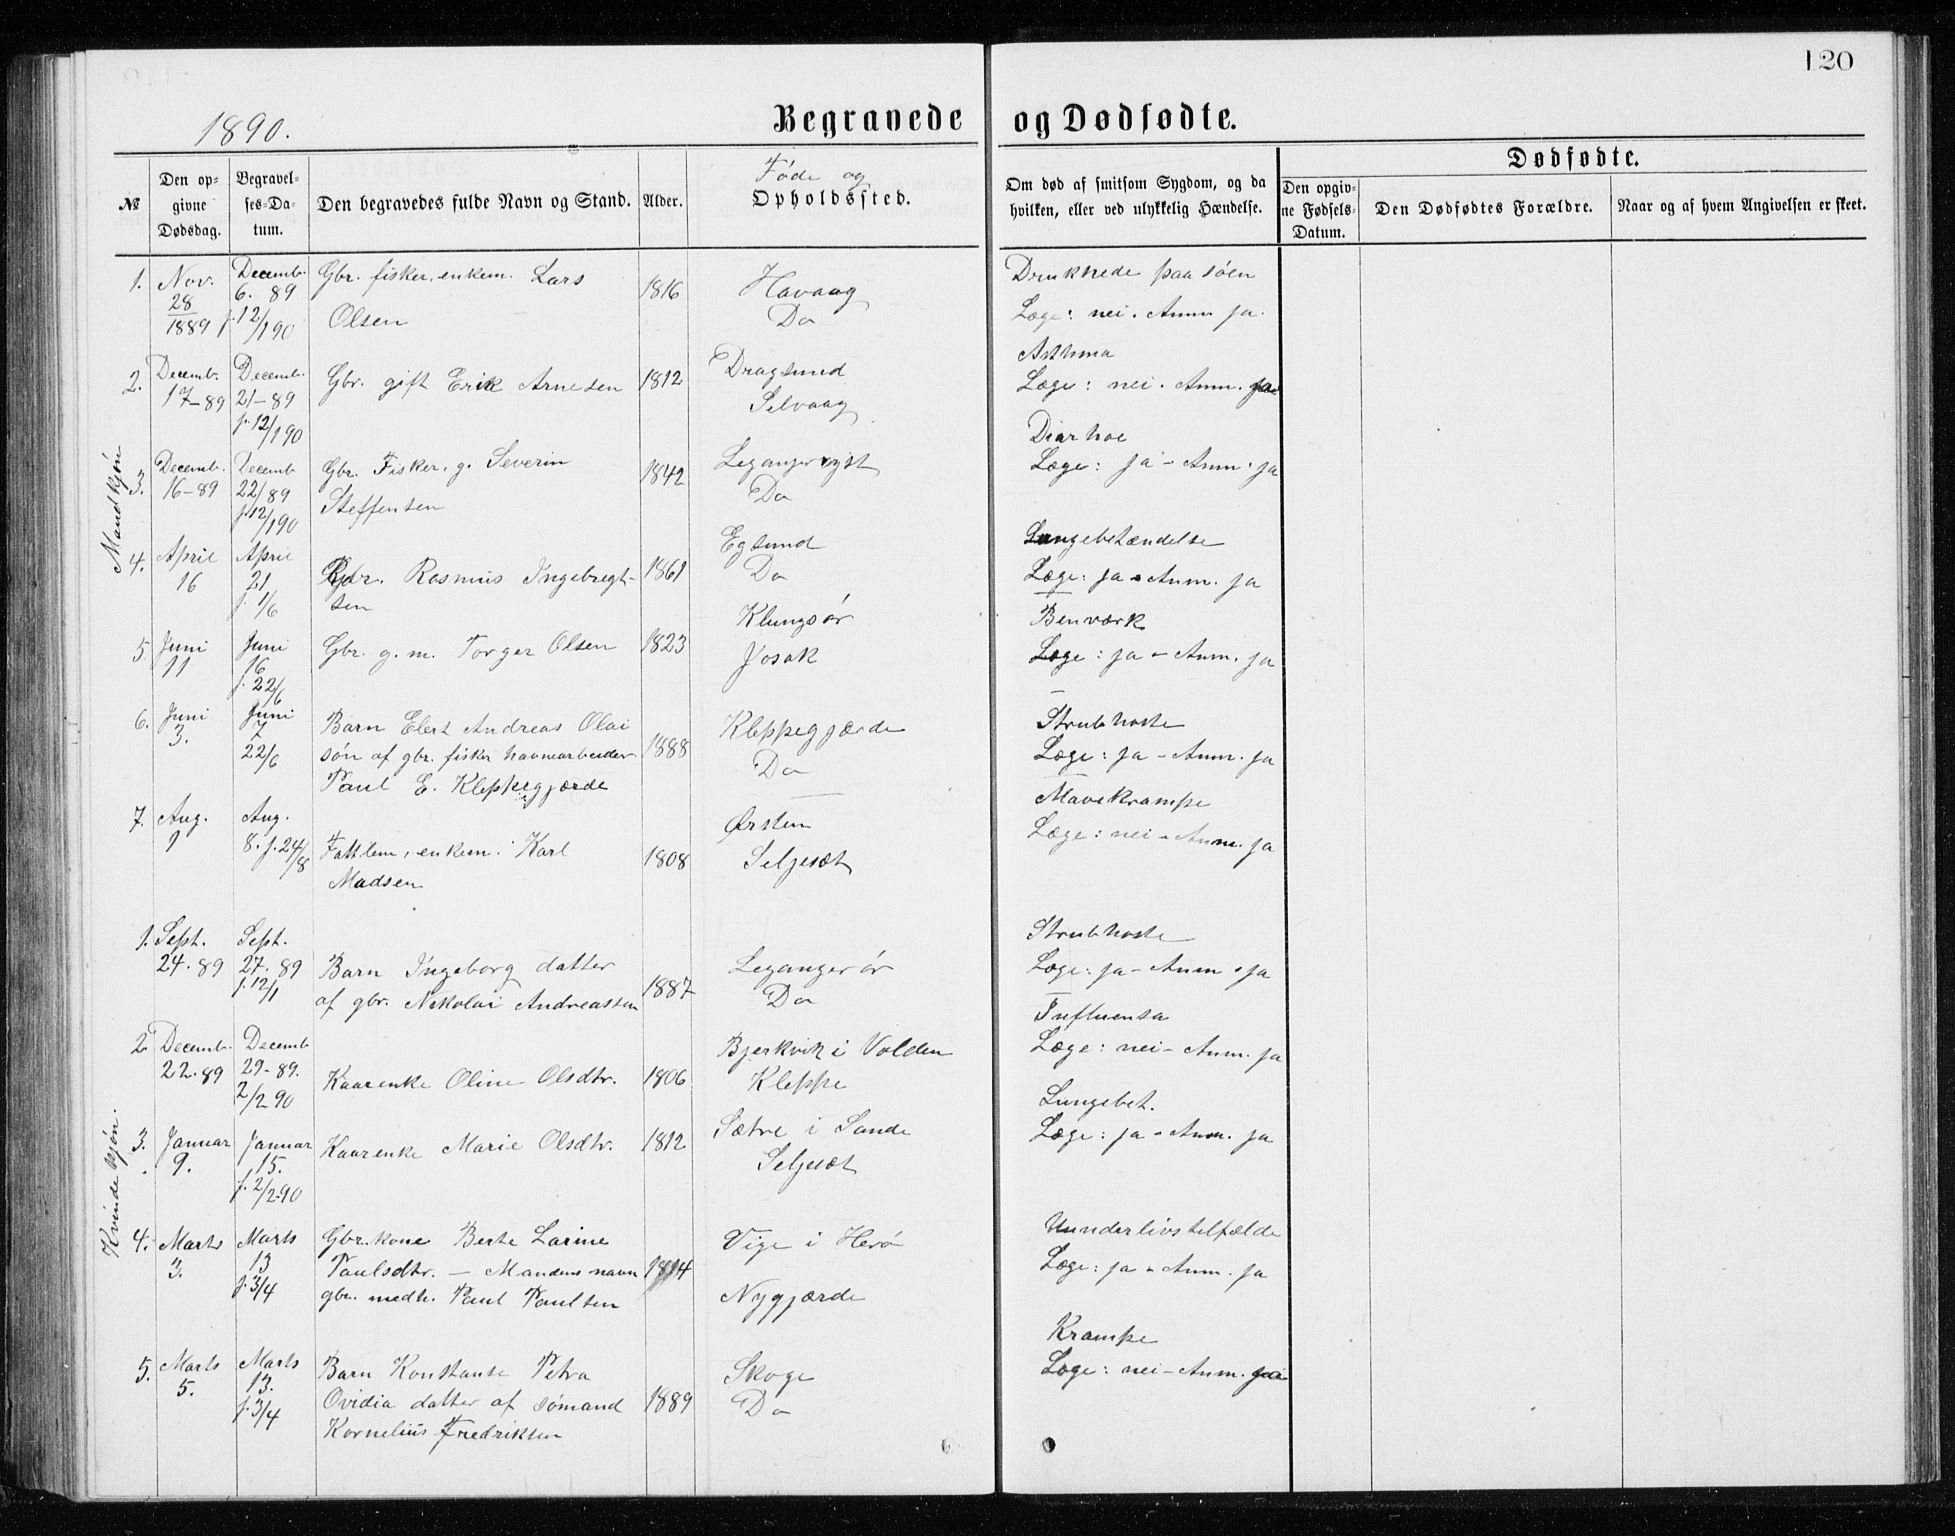 120
1890.
Begravede og Dødfødte.
Dødfødte.
№
Den opgivne Dødsdag.
Begravelses-Datum.
Den begravedes fulde Navn og Stand.
Alder.
Føde og
Opholdssted.
Om død af smitsom Sygdom, og da hvilken, eller ved ulykkelig Hændelse.
Den opgivne Fødsels-Datum.
Den Dødfødtes Forældre.
Naar og af hvem Angivelsen er skeet.
Mandkjøn
1. Nov. 28 1889
Decemb. 6. 89 j. 12/1 90
Gbr. fisker, enkem. Lars
Olsen
1816
Havaag
Do
Druknede paa søen
Læge: nei. Anm. ja.
2. Decemb. 17-89
Decemb. 21-89 j. 12/1 90
Gbr. gift Erik Arnesen
1812
Dragsund
Selvaag
Asthma
Læge: nei. Anm. ja
3. Decemb. 16-89
Decemb 22/89 j. 12/1 90
Gbr. Fisker, g. Severin
Steffensen
1842
Leganger
Do
Diarhoe
Læge: ja - Anm. ja
4. April 16
April 21 j. 1/6
Gbr. Rasmus Ingebregt-
sen
1861
Egsund
Do
Lungebetændelse
Læge: ja - Anm. ja
5. Juni 11
Juni 16 j. 22/6
Gbr. g. m. Torger Olsen
1823
Klungsør
Josok
Benværk
Læge: ja - Anm. ja
6. Juni 3.
Juni 7 22/6
Barn Elert Andreas Olai
søn af gbr. fisker havnearbeider
Paul E. Kleppegjærde
1888
Kleppegjærde
Do
Strubhoste
Læge: ja - Anm. ja
7. Aug. 1
Aug. 8. j. 24/8
Fattlem, enkem. Karl
Madsen
1808
Ørsten
Seljesæt
Mavekrampe
Læge: nei - Anm. ja
Kvindekjøn.
1. Sept. 24. 89
Sept. 27. 89 j. 12/1
Barn Ingeborg datter
af gbr. Nikolai Andreassen
1887
Leganger ør
Do
Strubhoste
Læge: ja - Anm. ja
2 Decemb. 22. 89
Decemb 29-89. 2/2 90
Kaarenke Oline Olsdtr.
1806
Bjerkvik i Volden
Kleppe
Influensa
Læge: nei - Anm. ja
3. Januar 9.
Januar 15. j. 2/2-90
Kaarenke Marie Olsdtr.
1812
Sætre i Sande
Seljesæt
Lungebet.
Læge: ja - Anm. ja
4. Marts 3.
Marts 13 j. 3/4
Gbr. kone Berte Larine
Paulsdtr. - Mandens navn
gbr. medh. Paul Paulsen
1814
Vige i Herø
Nygjærde
Uunderlivstilfælde
Læge: ja - Anm. ja
5. Marts 5.
Marts 13. j. 3/4
Barn Konstanse Petra
Ovidia datter af sømand
Kornelius Fredriksen
1889
Skoge
Do
Krampe
Læge: nei - Anm. ja